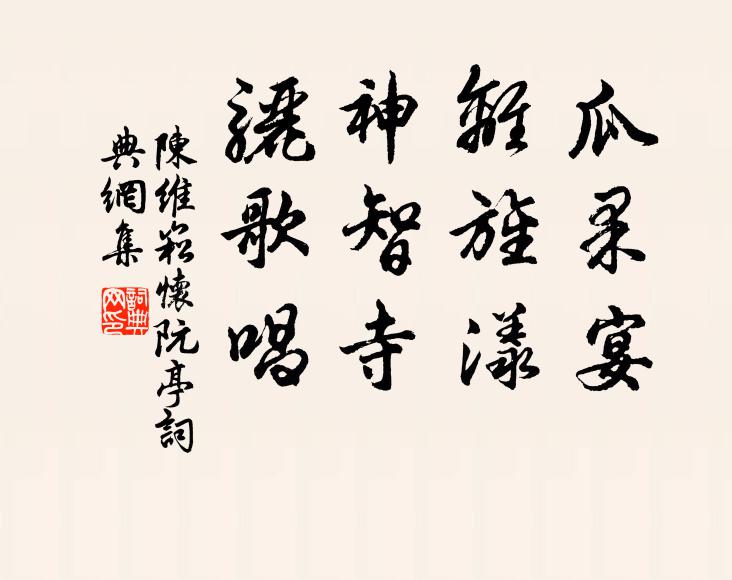 瓜果宴
離旌漾
神智寺
驪歌唱
陳維崧懷阮亭詞
典網集
詞典
网印